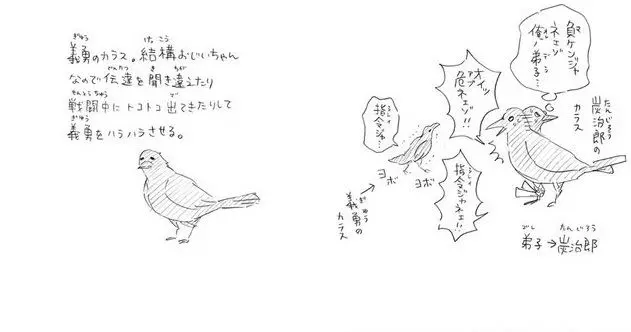 義勇のカラス。結構おじいちゃん
なので伝達を聞き違えたり
戦闘中にトコトコ出てきたりして
義勇をハラハラさせる。
負ケンジャ
ネェゾ
俺ノ弟子…
炭治郎の
カラス
オイッ
危ネェゾ!!
指令ジャ…
指令ジャネェ!!
ヨボ
ヨボ
義勇の
カラス
弟子→炭治郎